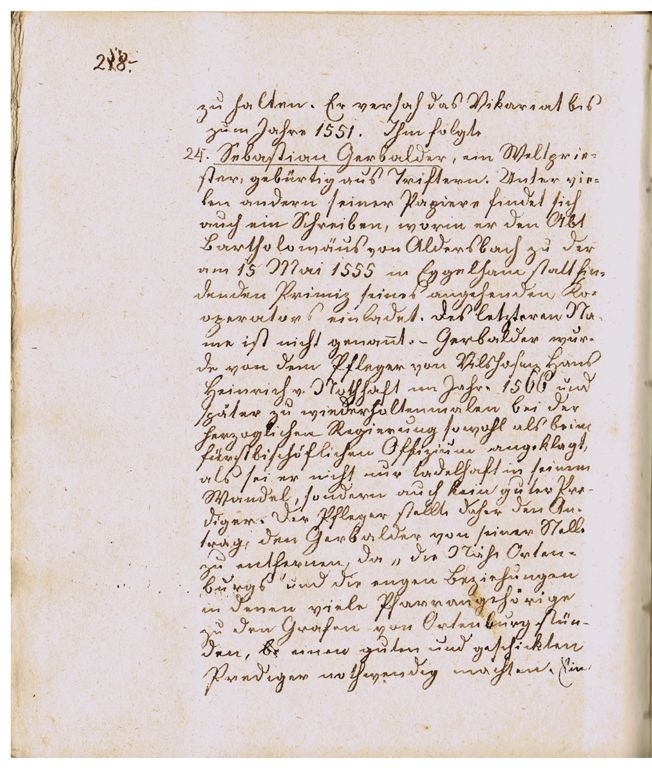 218.
zu halten. Er versah das Vikareat bis
zum Jahre 1551. Ihm folgte
24. Sebastian Gerbalder, ein Weltprie-
ster, gebürtig aus Triftern. Unter vie-
len andern seiner Papiere findet sich
auch ein Schreiben, worin er den Abt
Bartholomäus von Aldersbach zu der
am 15 Mai 1555 in Eggelham stattfin-
denden Primiz seines angehenden Ko-
operators einladet. Des letzteren Na-
me ist nicht genannt. - Gerbalder wur-
de von dem Pfleger von Vilshofen, Hans
Heinrich v. Nothhaft im Jahre 1566 und
später zu wiederholtenmalen bei der
herzoglichen Regierung sowohl als beim
fürstbischöflichen Offizium angeklagt,
als sei er nicht nur tadelhaft in seinem
Wandel, sondern auch kein guter Pre-
diger. Der Pfleger stellte daher den An-
trag, den Gerbalder von seiner Stelle
zu entfernen, da „die Nähe Orten-
burgs" und die engen Beziehungen
in denen viele Pfarrangehörige
zu den Grafen von Ortenburg stün-
den, einen guten und geschickten
Prediger nothwendig machten. Ein